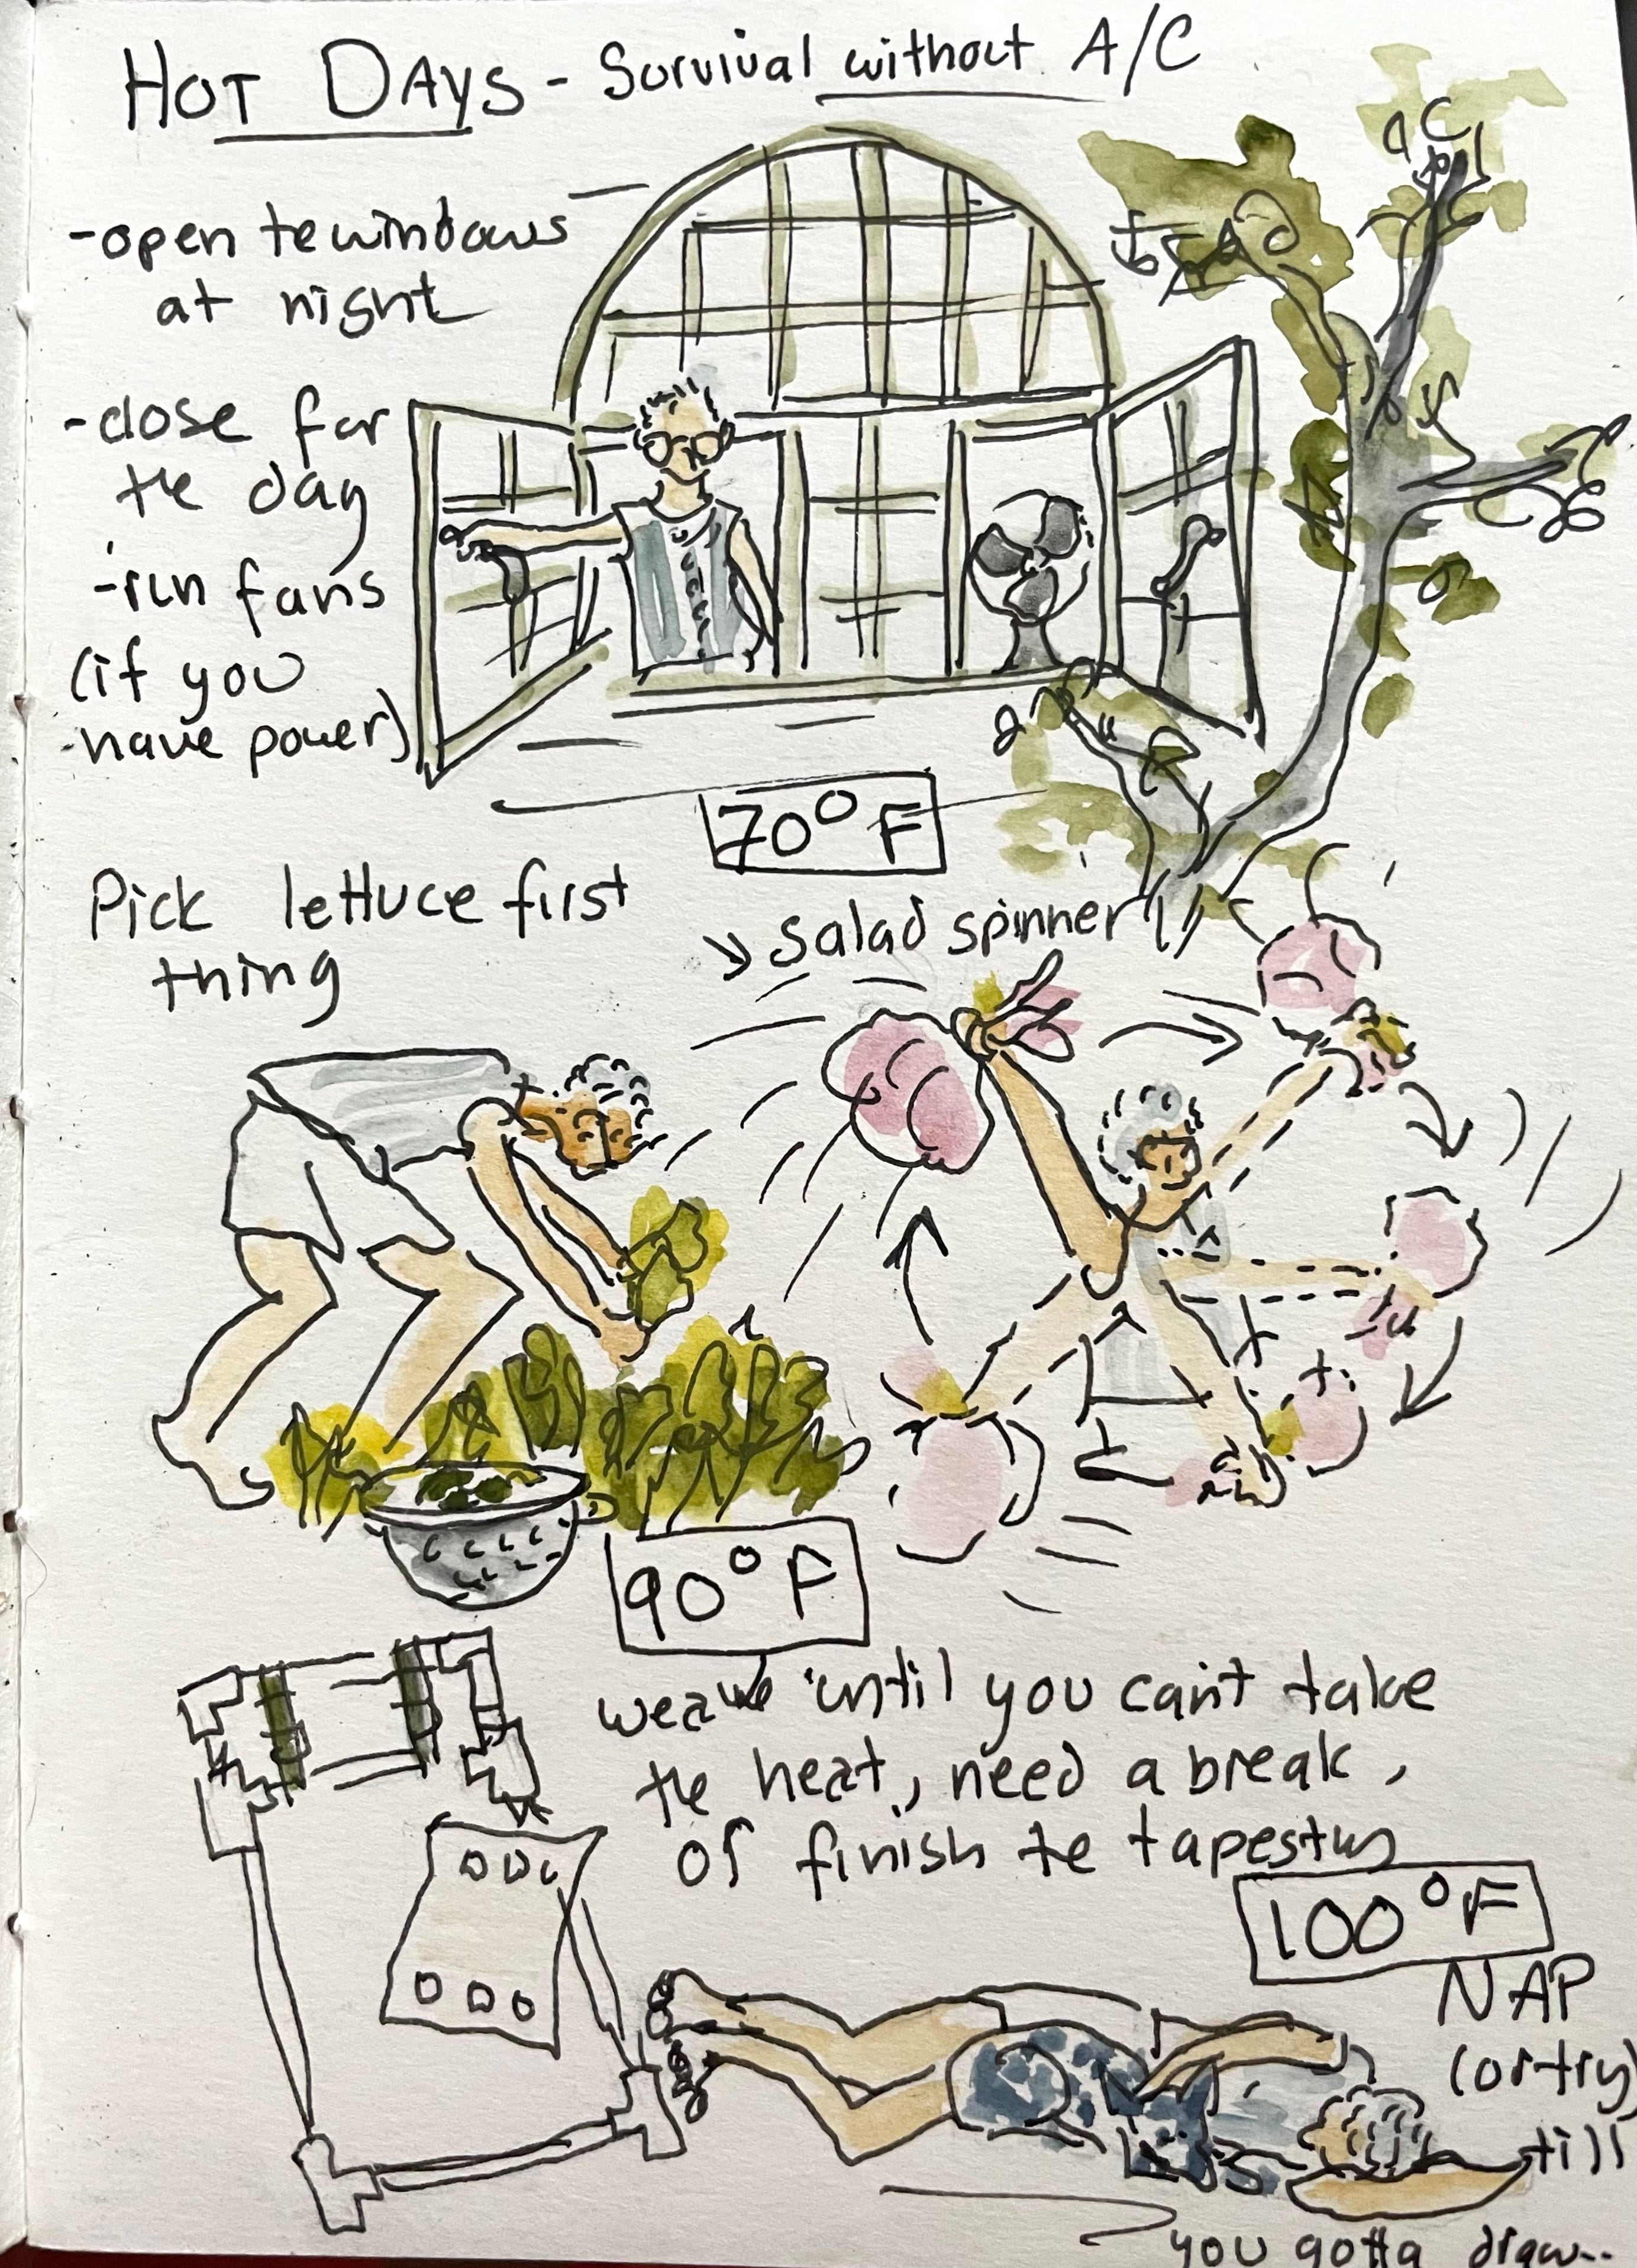 HOT DAYS - Survival without A/C
-open te windows
at night
-close for
the day
-run fans
(if you
have power)
70°F
Pick lettuce first
thing
→ salad spinner
90°F
weave until you can't take
the heat, need a break,
or finish te tapestry
100°F
NAP
(or try)
till
you gotta draw...